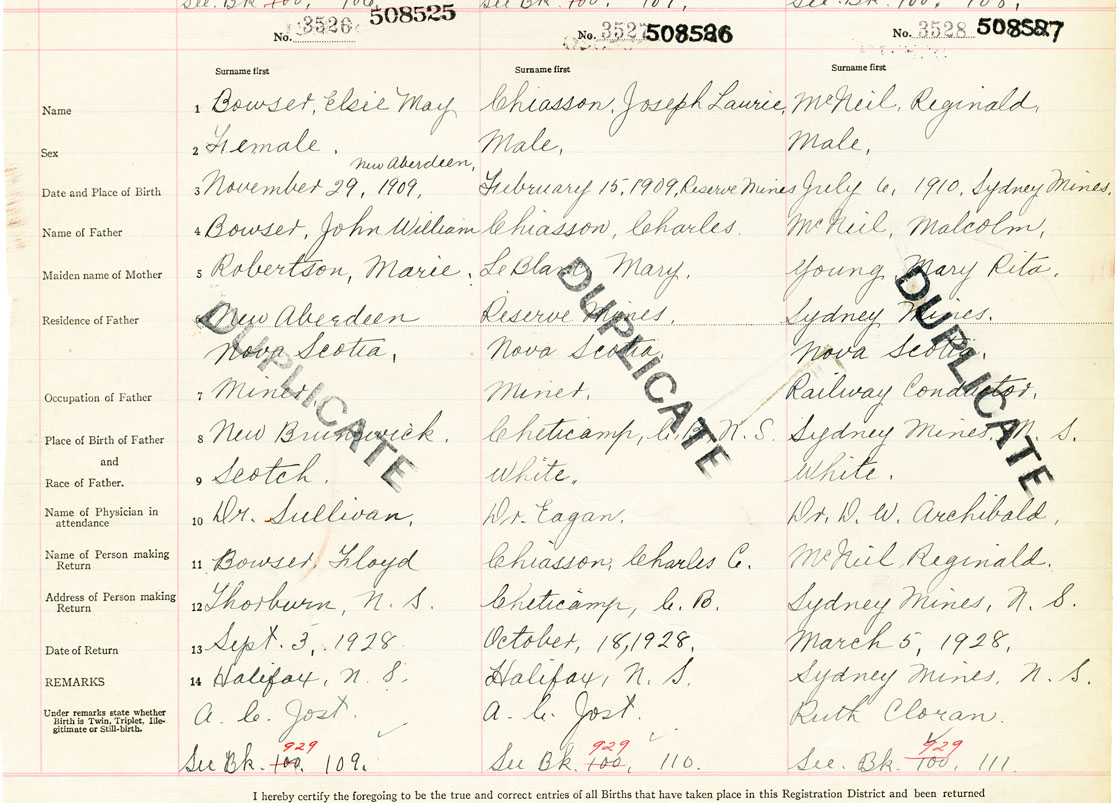 See Bk. 100, 106,
See Bk. 100, 107,
See Bk. 100, 108,
No. 3526 508525
No. 3527 508526
No. 3528 508527
Surname first
Surname first
Surname first
Name 1 Bowser, Elsie May Chiasson, Joseph Laurie, McNeil, Reginald,
Sex 2 Female. Male, Male,
New Aberdeen,
Date and Place of Birth 3 November 29, 1909, February 15, 1909, Reserve Mines July 6, 1910, Sydney Mines,
Name of Father 4 Bowser, John William Chiasson, Charles. McNeil, Malcolm,
Maiden name of Mother 5 Robertson, Marie. LeBlanc Mary. Young, Mary Rita.
Residence of Father 6 New Aberdeen Reserve Mines. Sydney Mines.
Nova Scotia, Nova Scotia, Nova Scotia.
Occupation of Father 7 Miner. Miner. Railway Conductor.
Place of Birth of Father 8 New Brunswick. Cheticamp, C. B. N. S. Sydney Mines, N. S.
and
Race of Father. 9 Scotch. White. White.
Name of Physician in attendance 10 Dr. Sullivan. Dr. Eagan. Dr. D. W. Archibald,
Name of Person making Return 11 Bowser, Floyd Chiasson, Charles C. McNeil, Reginald.
Address of Person making Return 12 Thorburn, N. S. Cheticamp, C. B. Sydney Mines, N. S.
Date of Return 13 Sept. 3, 1928 October, 18, 1928, March 5, 1928,
REMARKS 14 Halifax, N. S. Halifax, N. S. Sydney Mines, N. S.
Under remarks state whether Birth is Twin, Triplet, Ille-
gitimate or Still-birth. A. C. Jost. A. C. Jost. Ruth Cloran.
929 929 929
See Bk. 100, 109. See Bk. 100, 110. See. Bk. 100, 111.
DUPLICATE
DUPLICATE
DUPLICATE
I hereby certify the foregoing to be the true and correct entries of all Births that have taken place in this Registration District and been returned